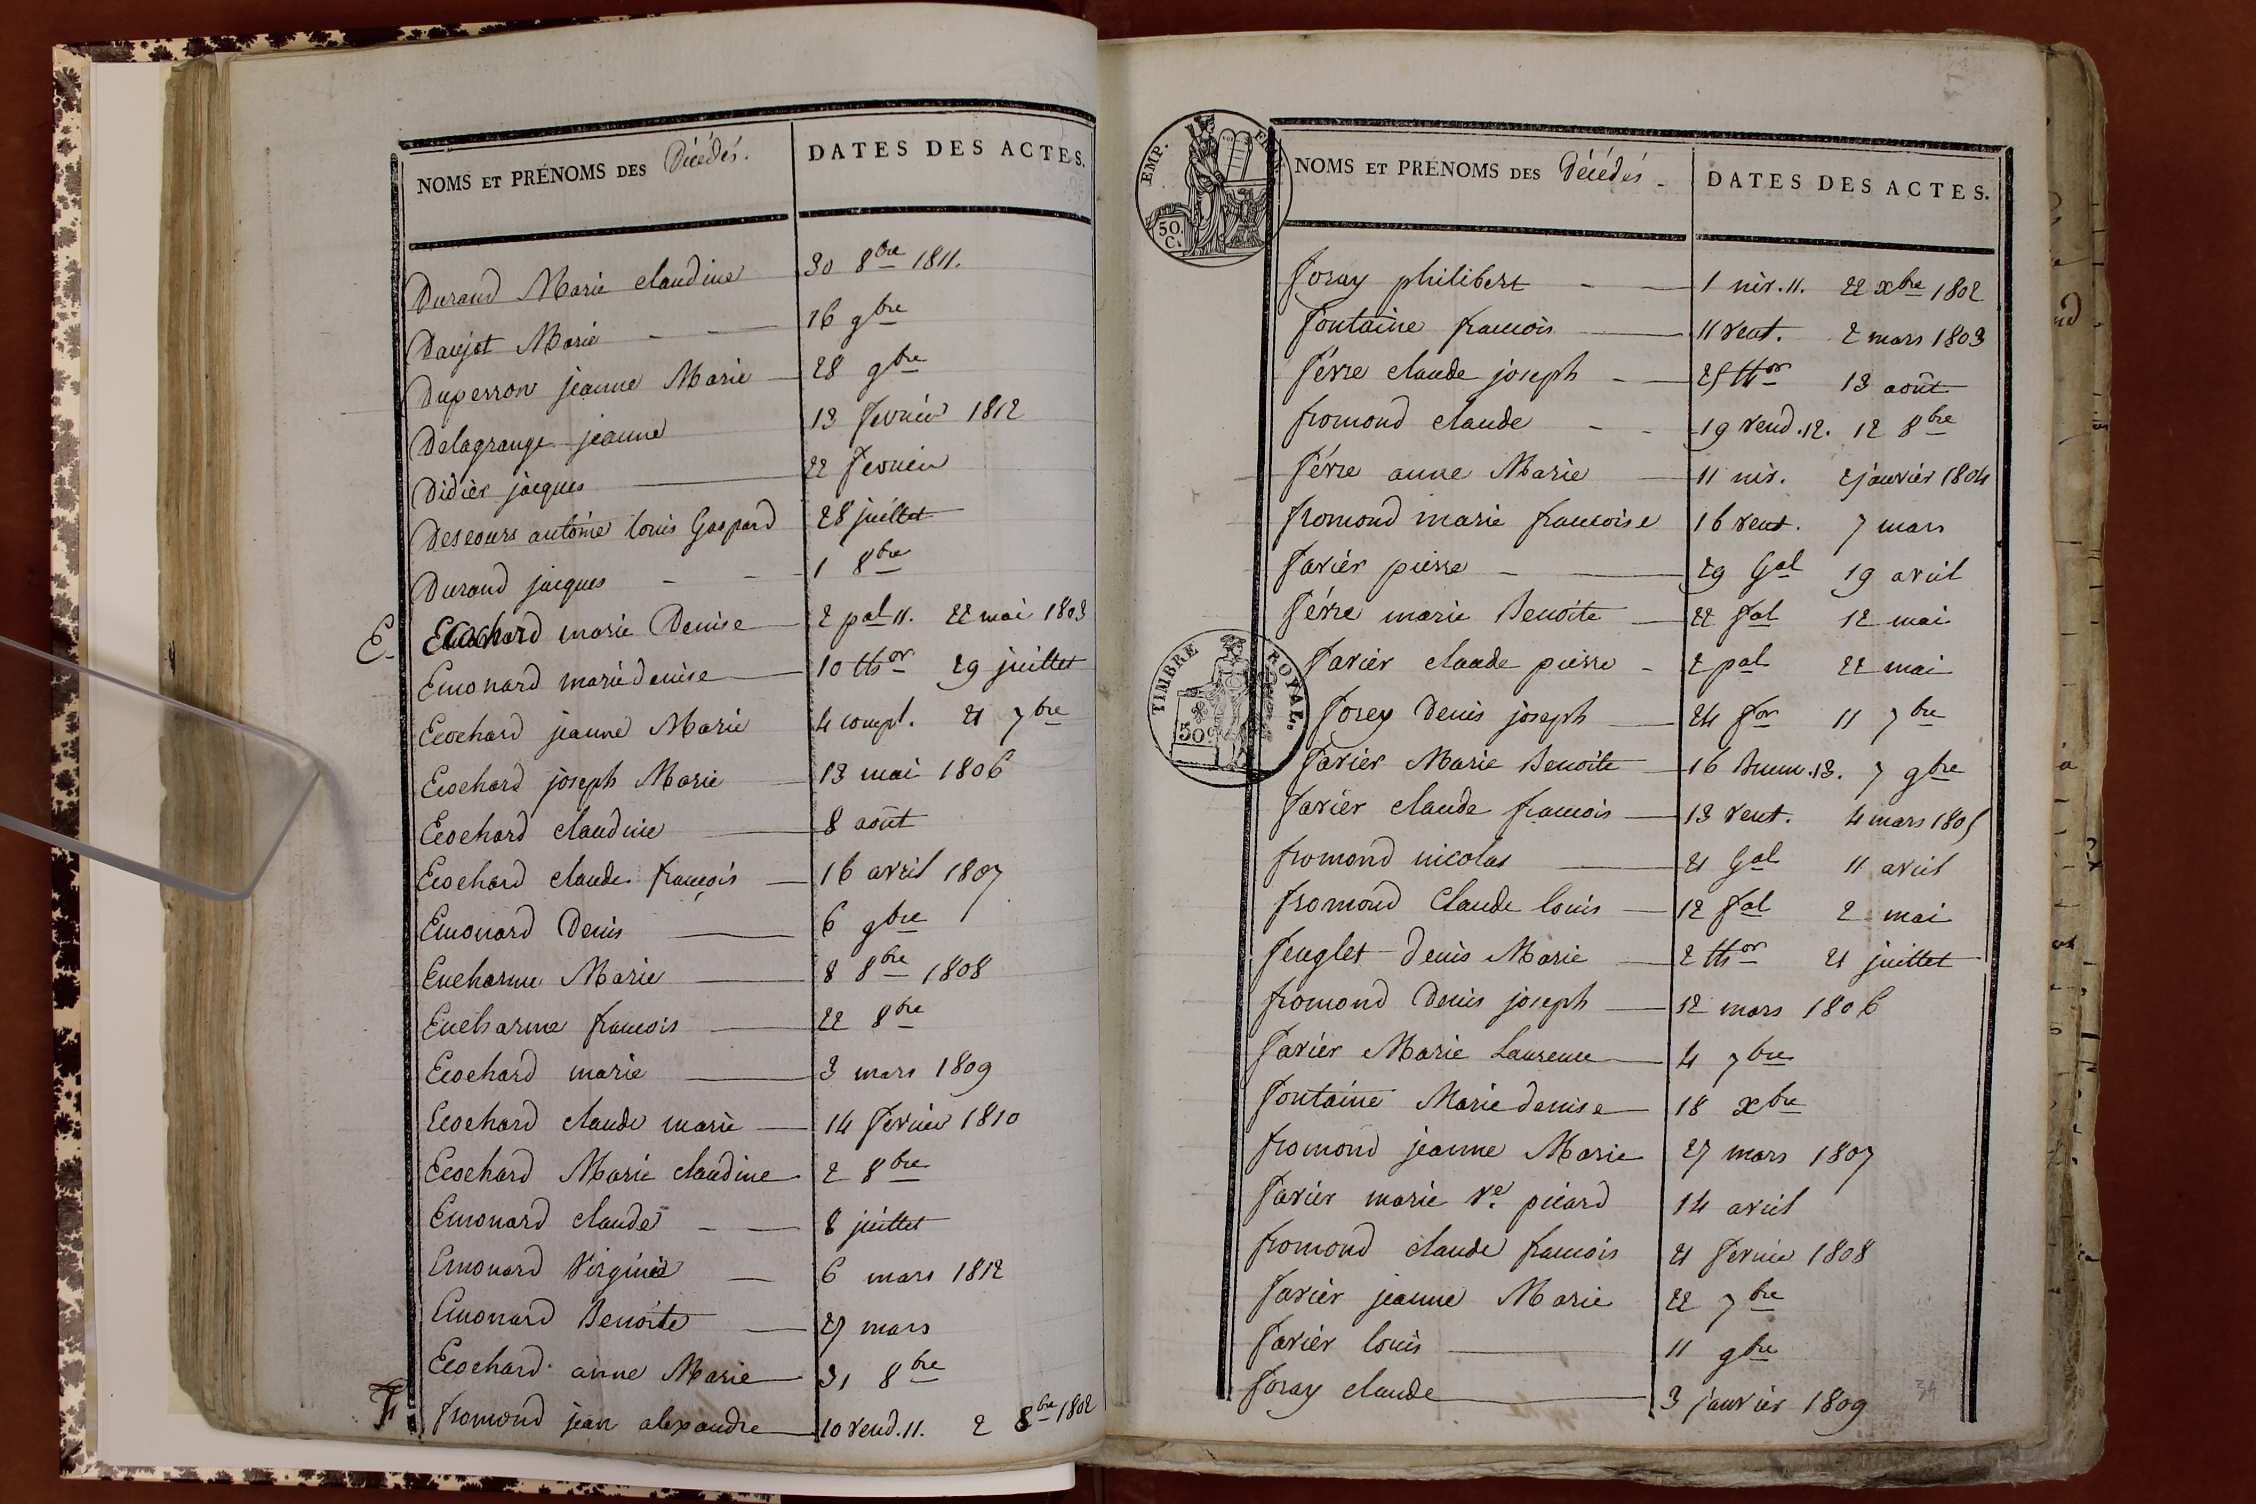 NOMS ET PRÉNOMS DES Décédés. DATES DES ACTES.
Durand Marie claudine 30 8bre 1811.
Daujat Marie - - 16 9bre
Duperron jeanne Marie 28 9bre
Delagrange jeanne 13 fevrier 1812
Didier jacques 22 fevrier
Descours antoine louis Gaspard 28 juillet
Durand jacques - - 1 8bre
E. Ecochard marie Denise 2 pal 11. 22 mai 1803
Emonard marie denise 10 thor 29 juillet
Ecochard jeanne Marie 4 compl. 21 7bre
Ecochard joseph Marie 13 mai 1806
Ecochard claudine 8 août
Ecochard claude françois 16 avril 1807
Emonard Denis 6 9bre
Eucharme Marie 8 8bre 1808
Eucharme francois 22 8bre
Ecochard marie 3 mars 1809
Ecochard claude marie 14 fevrier 1810
Ecochard Marie claudine 2 8bre
Emonard claude - 8 juillet
Emonard Virginie 6 mars 1812
Emonard Benoite 27 mars
Ecochard anne Marie 31 8bre
F. fromond jean alexandre 10 vend. 11. 2 8bre 1802
EMP.
50. C.
NOMS ET PRÉNOMS DES Décédés - DATES DES ACTES.
foray philibert - 1 niv. 11. 22 xbre 1802
fontaine francois 11 vent. 2 mars 1803
févre claude joseph - 25 thor 13 août
fromond claude - - 19 vend. 12. 12 8bre
févre anne Marie 11 niv. 2 janvier 1804
fromond marie francoise 16 vent. 7 mars
favier pierre - 29 Gal 19 avril
févre marie Benoite 22 fal 12 mai
favier claude pierre - 2 pal 22 mai
TIMBRE ROYAL.
50c
forey Denis joseph 24 for 11 7bre
favier Marie Benoite 16 Brum. 13. 7 9bre
favier claude francois 13 vent. 4 mars 1805
fromond nicolas 21 Gal 11 avril
fromond Claude louis 12 fal 2 mai
feuglet Denis Marie 2 thor 21 juillet
fromond Denis joseph 12 mars 1806
favier Marie Laurence 4 7bre
fontaine Marie denise 18 xbre
fromond jeanne Marie 27 mars 1807
favier marie ve. picard 14 avril
fromond claude francois 21 fevrier 1808
favier jeanne Marie 22 7bre
favier louis 11 9bre
foray claude 3 janvier 1809
34